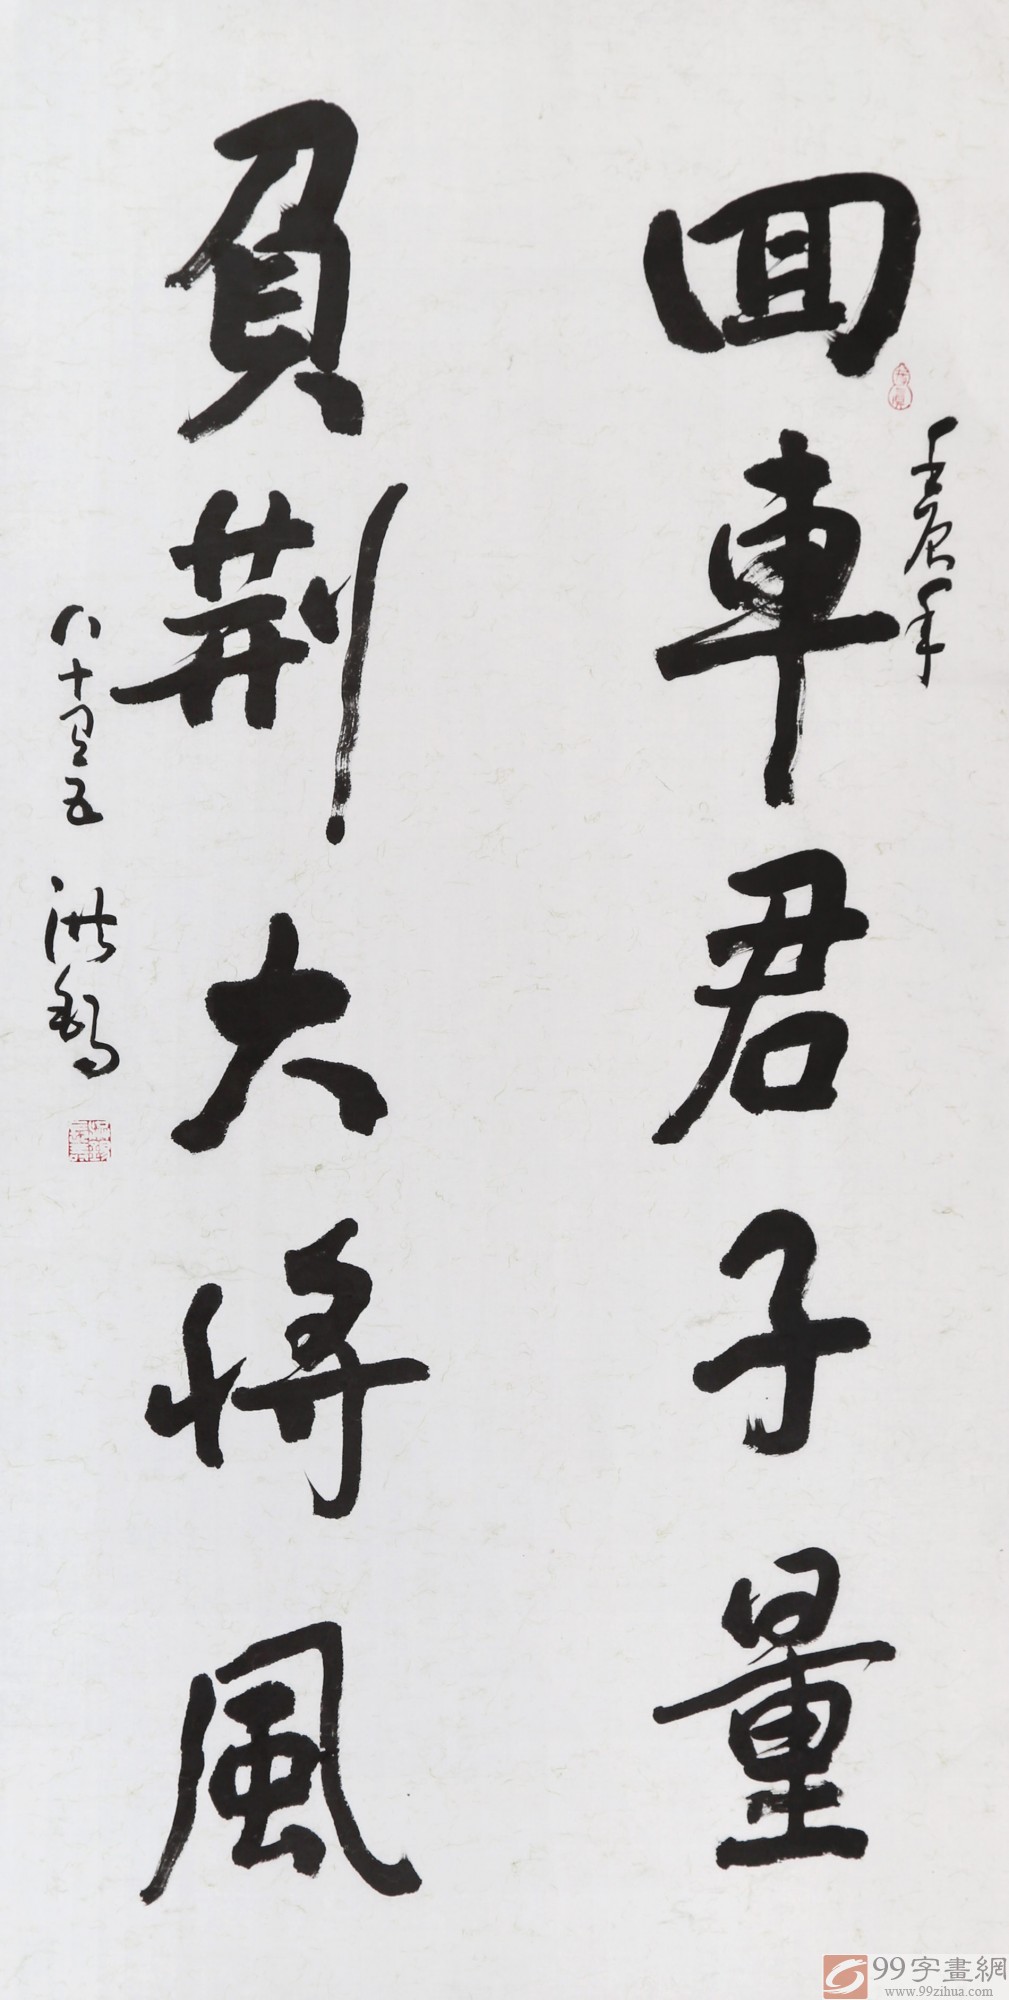 回車君子量
壬辰年
負荆大將風
八十有五 洪鹤
99字畫網
www.99zihua.com